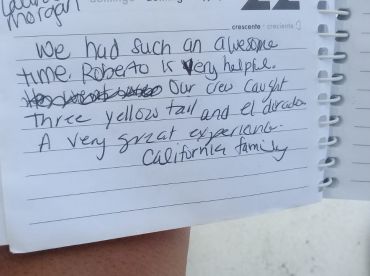 morgan
22
crescente / creciente
We had such an awesome
time. Roberto is very helpful.
Our crew caught
three yellow tail and el dorado
A very great experience.
California family